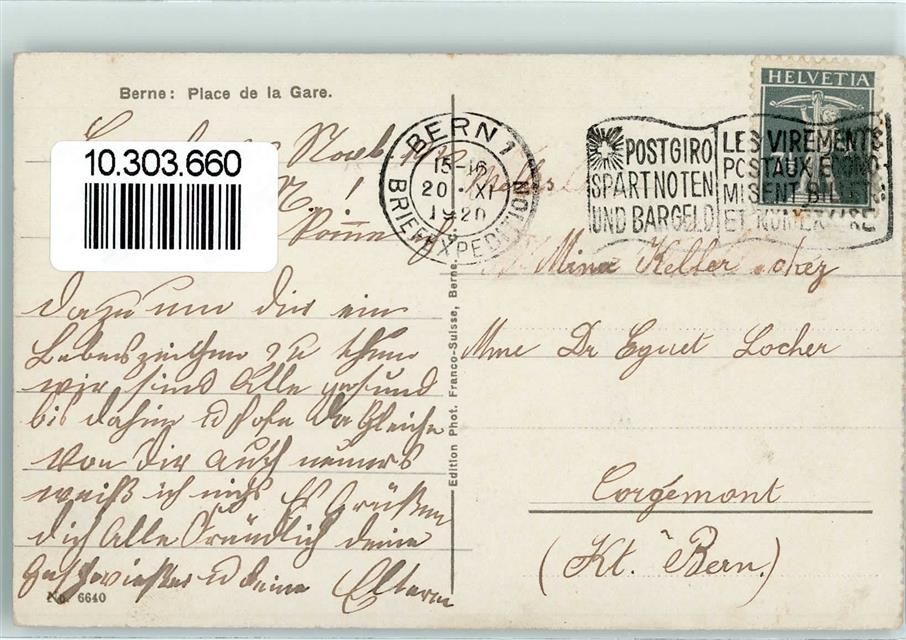 Berne: Place de la Gare.
10.303.660
Noch
dazu um dir ein
Lebeszeichen zu thun
wir sind Alle gesund
bis dahin u hofe da Gleiche
von dir auch neuers
weiß ich nichs Es Grüßen
dich Alle Freundlich deine
Geschwister u deine Eltern
No. 6640
Edition Phot. Franco-Suisse, Berne.
BERN 1
15-16
20 · XI
1920
BRIEFEXPEDITION
POSTGIRO
SPART NOTEN
UND BARGELD
LES VIREMENTS
POSTAUX ÉCONO-
MISENT BILLETS
ET NUMÉRAIRE
HELVETIA
Mina Keller chez
Mme Dr Eguet Locher
Corgémont
(Kt. Bern.)